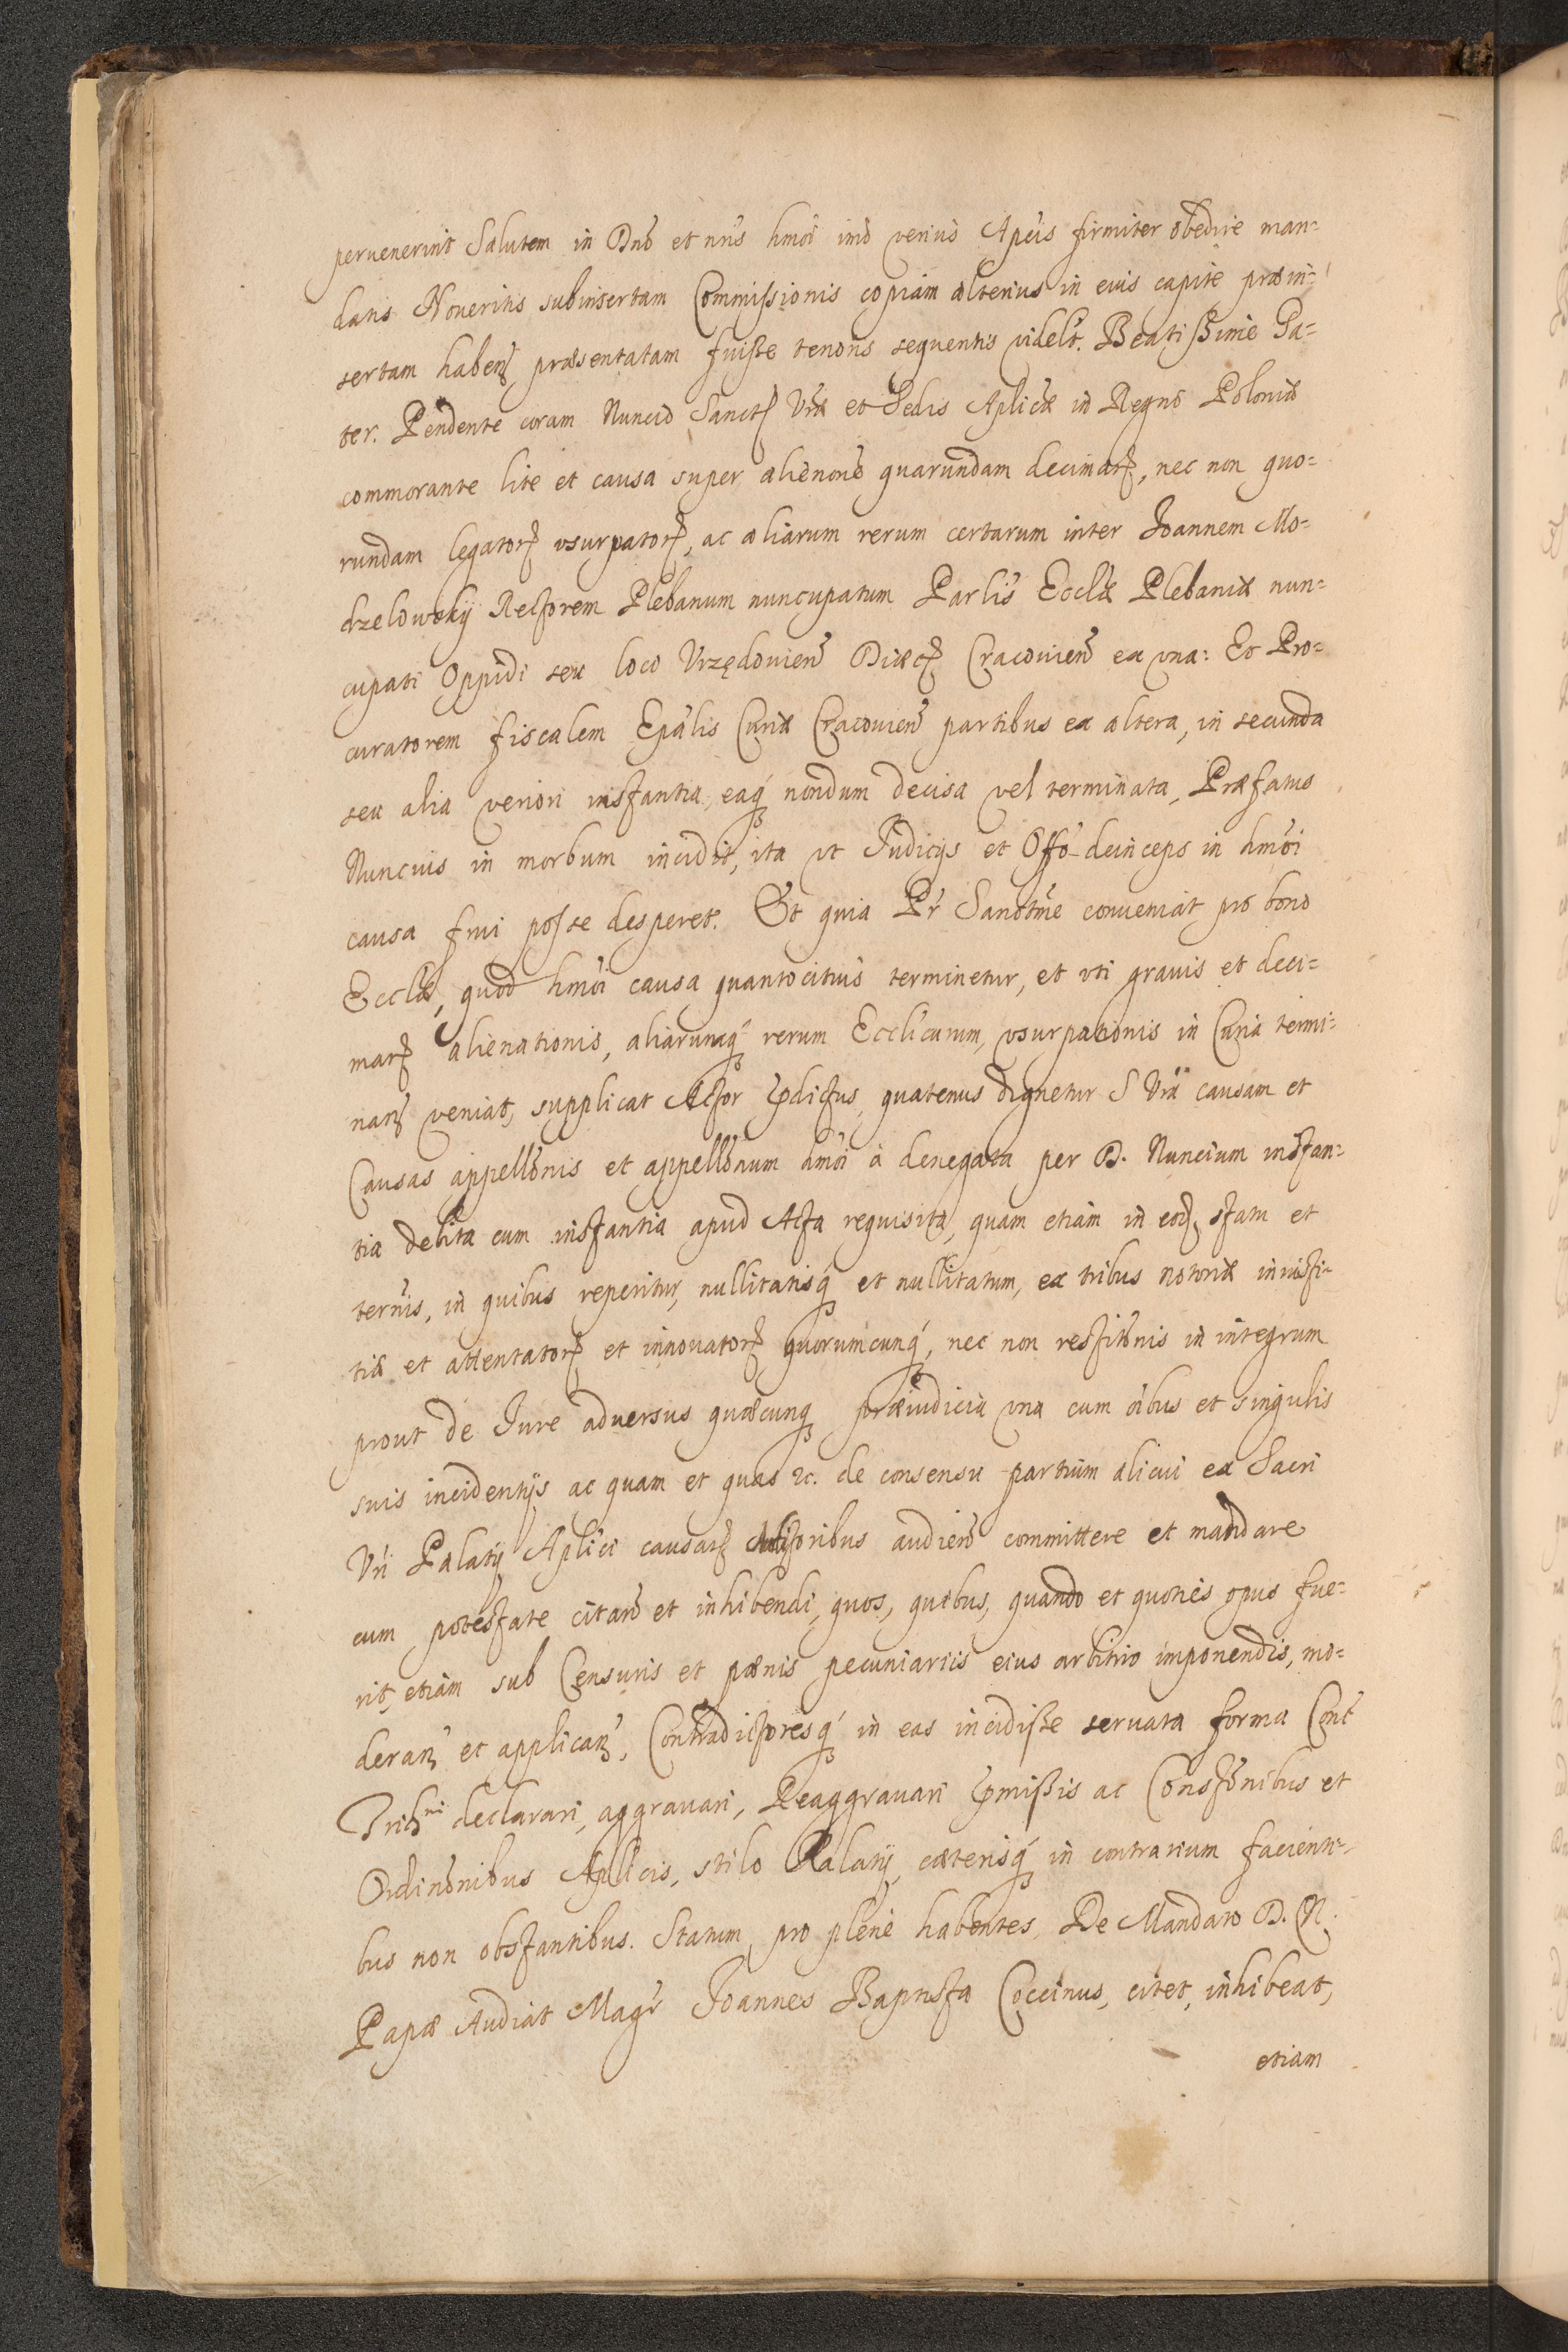 peruenerint Salutem in Dno et nris hmoi imò verius Aplcis firmiter obedire man=
datis Noueritis subinsertam Commißionis copiam alterius in euis capite præin=
sertam haben præsentatam fuiße tenoris sequentis videlt. Beatißime Pa=
ter. Pendente coram Nuncio Sanct Vræ et Sedis Aplicæ in Regno Poloniæ
commorante lite et causa super alienone quarundam decimar, nec non quo=
rundam legator vsurpator, ac aliarum rerum certarum inter Joannem Mo=
drzelowskÿ Rectorem Plebanum nuncupatum Parlis Ecclæ Plebaniæ nun=
cupati Oppidi seu loco Vrzędouien Diæc Cracouien ex vna: Et Pro=
curatorem fiscalem Epalis Curiæ Cracouien partibus ex altera, in secunda
seu alia veriori instantia, eaq nondum decisa vel terminata, Præfatus
Nuncius in morbum incidit, ita vt Judicÿs et Offo deinceps in hmoi
causa frui posse desperet. Et quia Pr Sanctme conueniat pro bono
Ecclæ, quod hmoi causa quantocitius terminetur, et vti grauis et deci=
mar alienationis, aliarumq rerum Ecclicarum, vsurpationis in Curia termi=
nan veniat, supplicat Actor pdictus, quatenus dignetur S Vrä causam et
Causas appellonis et appellonum hmoi à denegata per D. Nuncium instan=
tia delita cum instantia apud Acta requisita, quam etiam in eod statu et
termis, in quibus reperitur, nullitatisq et nullitatum, ex tribus notoriæ iniusti=
tiæ et attentator et innouator quorumcunq, nec non restitonis in integrum
prout de Jure aduersus quæcunq præiudicia vna cum oibus et singulis
suis incidentÿs ac quam et quas &c. de consensu partium alicui ex Sacri
Vri Palatÿ Aplici causar Auditoribus audien committere et mandare
cum potestate citan et inhibendi, quos, quibus, quando et quoties opus fue=
rit, etiam sub Censuris et pænis pecuniariis eius arbitrio imponendis, mo=
deran et applican, Contradictoresq in eas incidiße seruata forma Conc
Trid<sup>ni</sup> declarari, aggrauari, Reaggrauari pmißis ac Constonibus et
Ordinonibus Aplicis, stilo Palatÿ, cæterisq in contrarium facienti=
bus non obstantibus. Statum pro plene habentes, De Mandato D. N.
Papæ Audiat Magr Joannes Baptista Coccinus, citet, inhibeat,
etiam